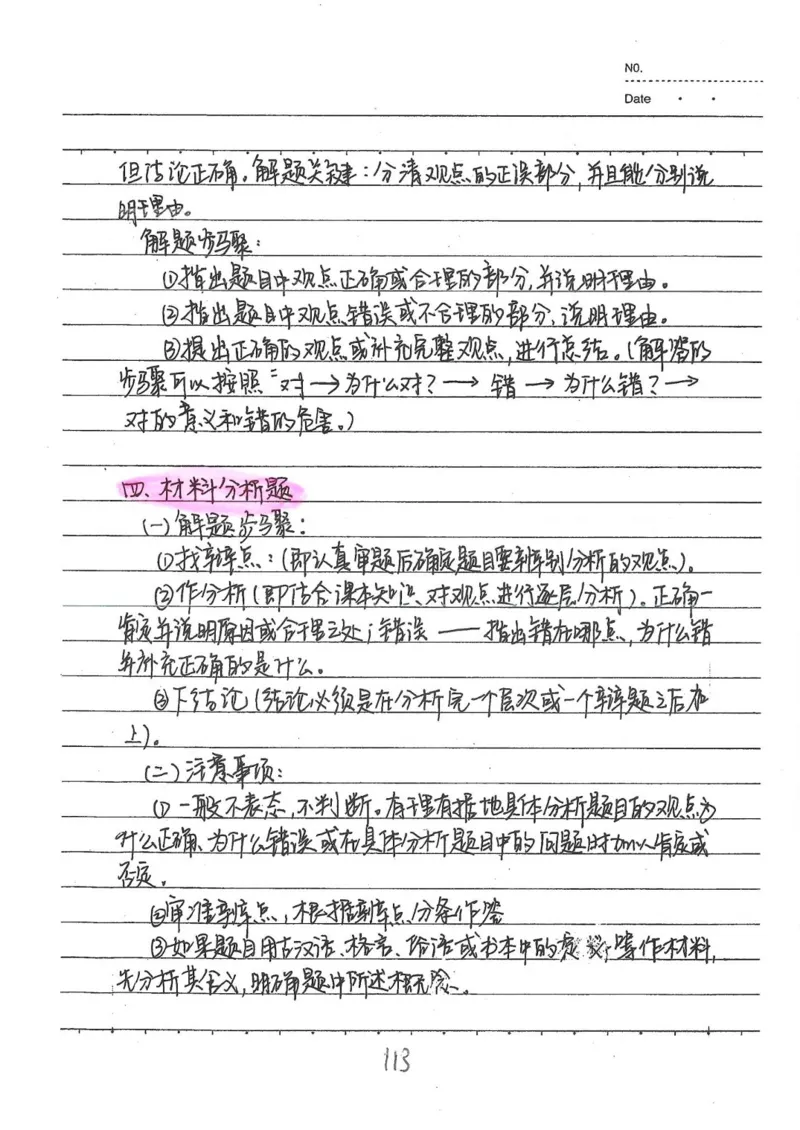 NO.
Date
但结论正确。解题关键：分清观点的正误部分，并且能分别说
明理由。
解题步骤：
①指出题目中观点正确或合理的部分，并说明理由。
②指出题目中观点错误或不合理的部分，说明理由。
③提出正确的观点或补充完整观点，进行总结。（解答的
步骤可以按照"对→为什么对？→错→为什么错？→
对的意义和错的危害。）
四、材料分析题
（一）解题步骤：
①找辨点：（即认真审题后确定题目要辨别分析的观点）。
②作分析（即结合课本知识、对观点进行逐层分析）。正确—
肯定并说明原因或合理之处；错误——指出错在哪点，为什么错
并补充正确的是什么。
③下结论（结论必须是在分析完一个层次或一个辨题之后加
上）。
（二）注意事项：
① 一般不表态，不判断。有理有据地具体分析题目的观点为
什么正确、为什么错误或在具体分析题目中的问题时加以肯定或
否定。
②审准辨点，根据辨点分条作答
③如果题目用古汉语、格言、俗语或书本中的 等作材料，
先分析其含义，明确题中所述概念。
113